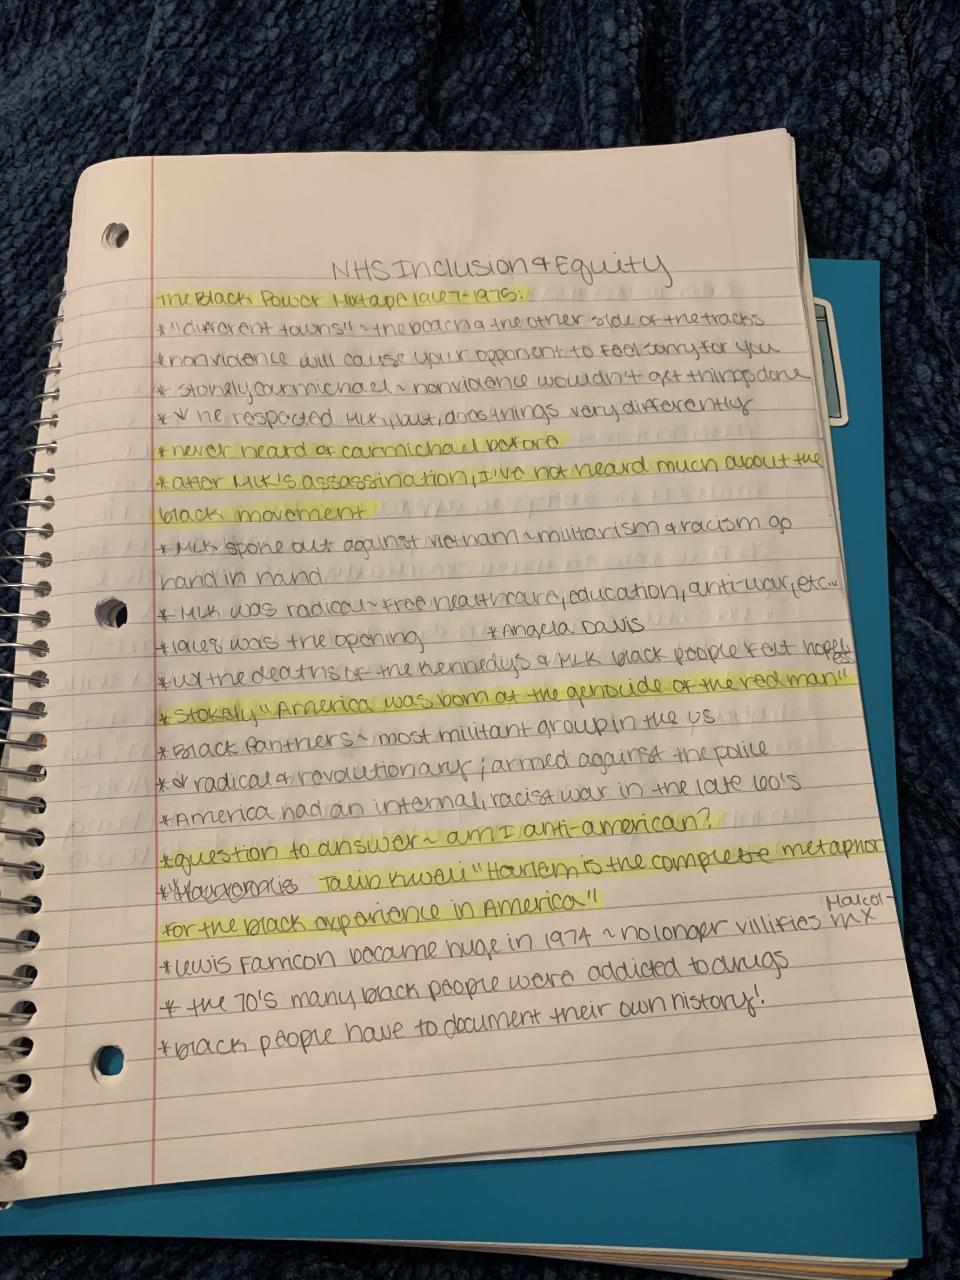 NHS Inclusion & Equity
The Black Power Mixtape 1967-1975:
*"different towns" ~ the beach & the other side of the tracks
*nonviolence will cause your opponent to feel sorry for you
* Stonely Carmichael ~ nonviolence wouldn't get things done
* he respected MLK, but, does things very differently
*never heard of Carmichael before
*after MLK's assassination, I've not heard much about the
black movement
*MLK spoke out against vietnam ~ militarism & racism go
hand in hand
*MLK was radical ~ free healthcare, education, anti-war, etc...
*1968 was the opening *Angela Davis
*w/ the deaths of the Kennedy's & MLK black people felt hopeless
*Stokely "America was born at the genocide of the red man"
*Black Panthers ~ most militant group in the US
* radical & revolutionary; armed against the police
*America had an internal, racist war in the late 60's
*question to answer ~ am I anti-american?
* Talib Kweli "Harlem is the complete metaphor
for the black experience in America"
*Lewis Farricon became huge in 1974 ~ no longer villifies Malcolm X
* the 70's many black people were addicted to drugs
*black people have to document their own history!